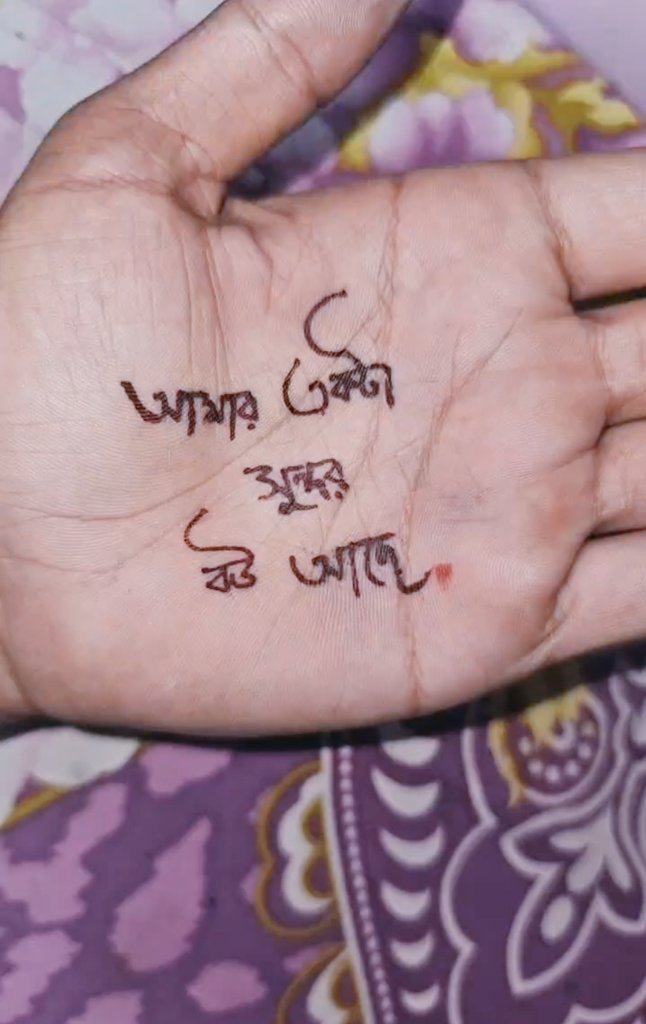 আমার একটা
সুন্দর
বউ আছে